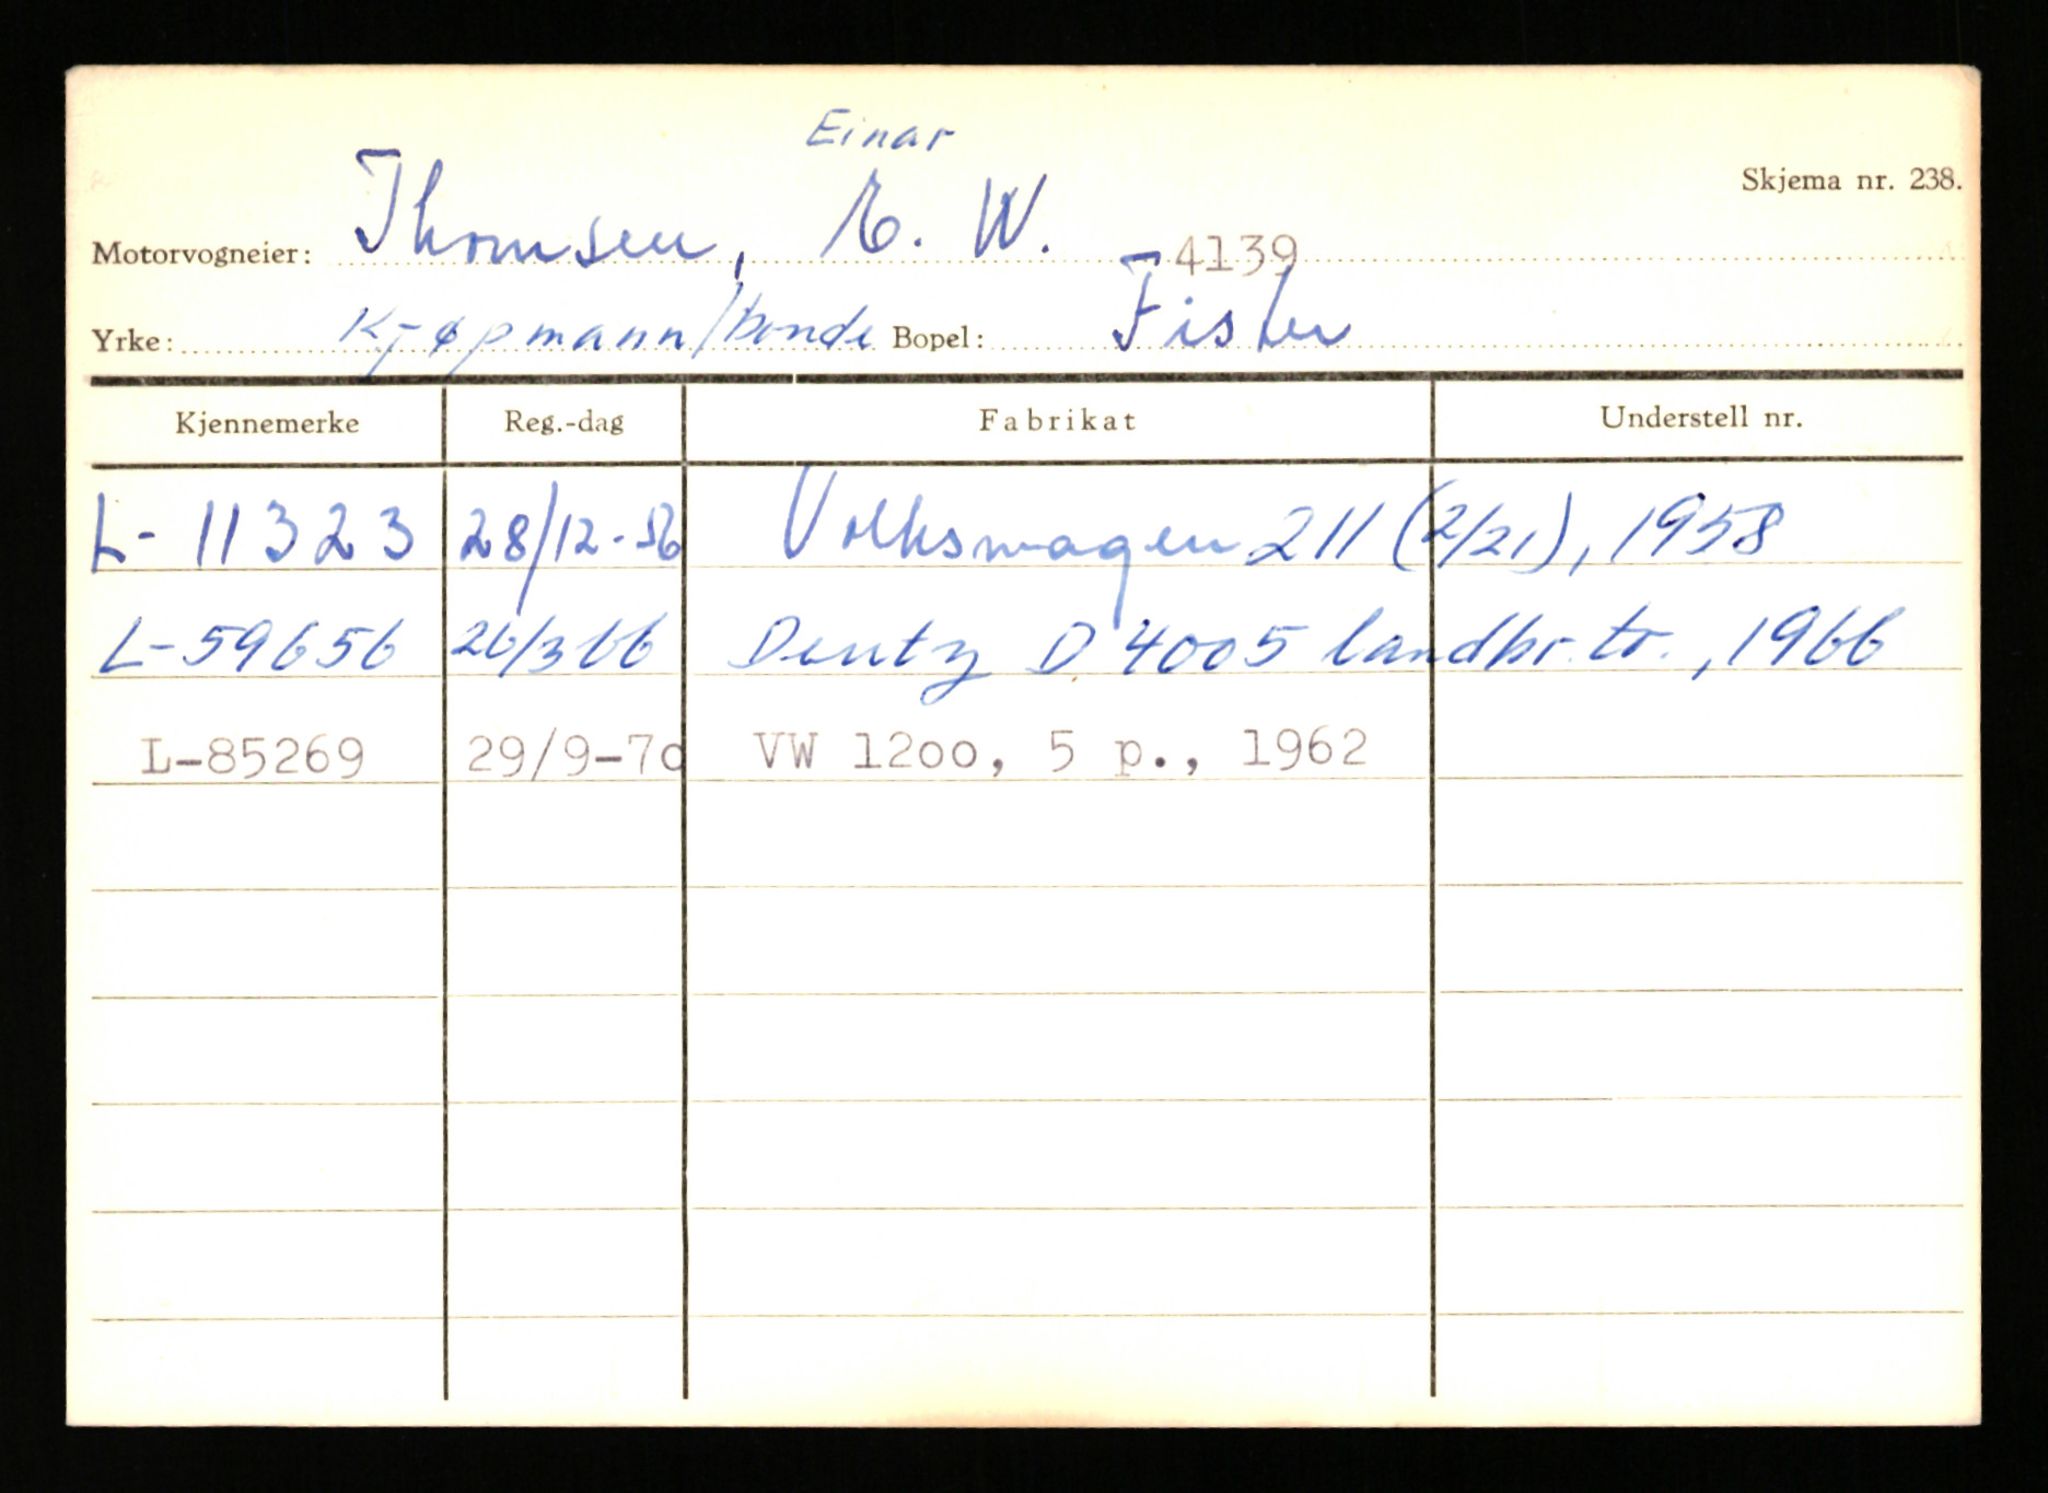 Einar
Skjema nr. 238.
Motorvogneier: Thomsen, E. W. 4139
Yrke: Kjøpmann/bonde Bopel: Fister
Kjennemerke Reg.-dag Fabrikat Understell nr.
L- 11323 28/12-56 Volkswagen 211 (2/21), 1958
L-59656 26/3 66 Deutz D 4005 landbr. tr., 1966
L-85269 29/9-70 VW 1200, 5 p., 1962